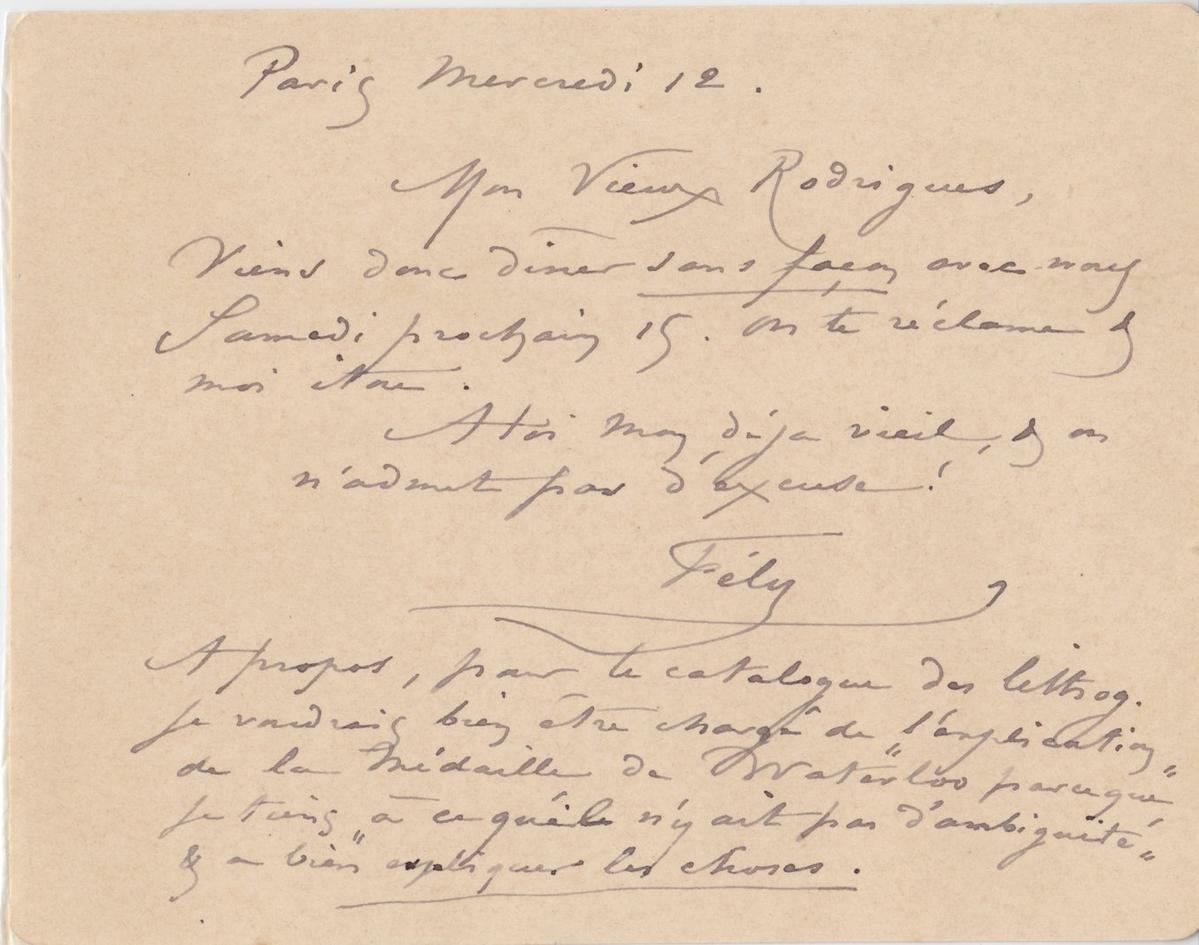 Paris Mercredi 12.
Mon Vieux Rodrigues,
Viens donc dîner sans façon avec nous
Samedi prochain 15. On te réclame &
moi itou.
A toi mon déja vieil, & on
n'admet pas d'excuse!
Fély
A propos, pour le catalogue des lithog.
je voudrais bien être chargé de "l'explication"
de la Médaille de Waterloo parceque
je tiens "à ce qu'il n'y ait pas d'ambiguité"
& a bien expliquer les choses.